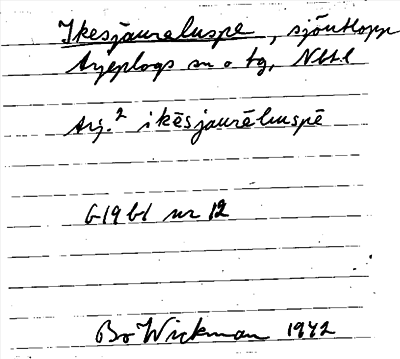 Ikesjaureluspe, sjöutlopp
Arjeplogs sn o tg, Nbtl
Arj.² ikēsjaurēluspē
G19 bl nr 12
Bo Wickman 1942